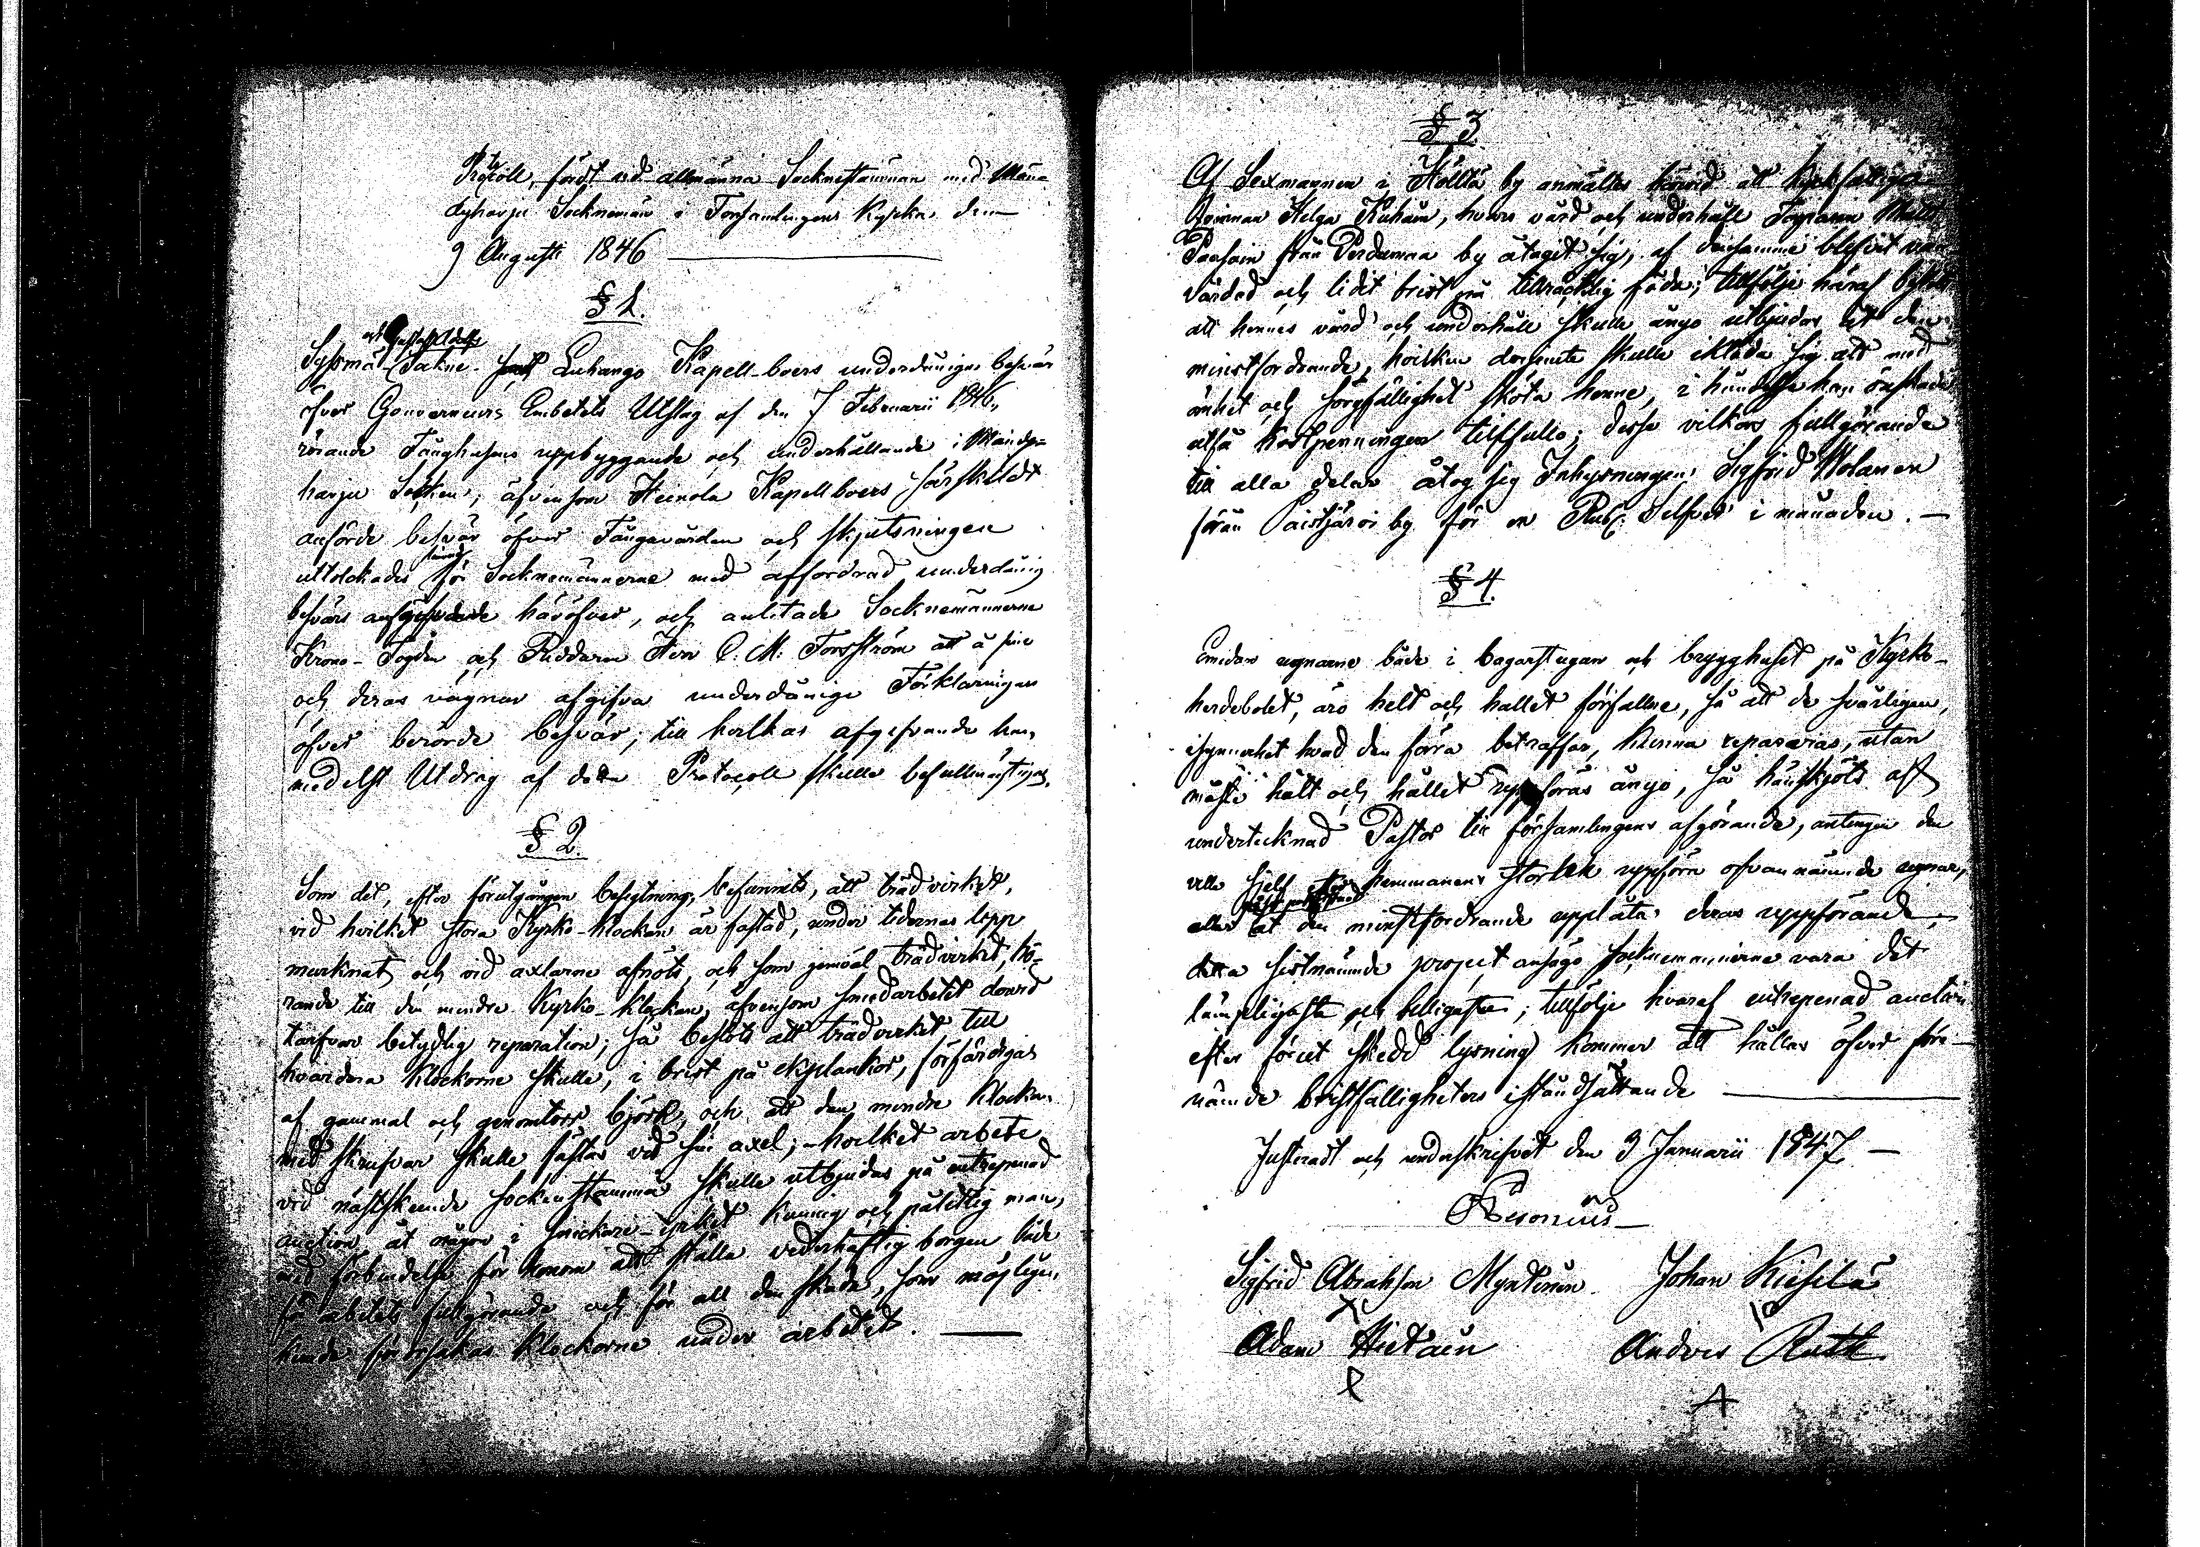 Protocoll, fördt vid allmänna Sockenstämman med Mänt-
tyharju Sockneman i Församlingens Kyrka den
9 Augusti 1846
§ 1.
och Gustaf Adolfs
Syssmä Sokne- Luhango Kapell-boers underdåniga besvär
öfver Gouverneurs Embetets Utslag af den 7 Februarii 1846,
rörande Fånghusens uppbyggande och underhållande i Mändy-
harju Socken, äfvensom Heinola Kapellboers särskildt
anförde besvär öfver Fångavården och skjutsningen
uttolckades för Socknemännerne med affordrad underdånig
besvärs häröfver, och anlitade Socknemännerne
Krono-Fogden och Riddaren Herr C. M. Forsström att å sine
och deras vägnar afgifva underdånige Förklaringar
öfver berörde besvär; till hvilkas afgifvande han,
medelst Utdrag af detta Protocoll skulle befullmäktigas.
§ 2
Som det, efter förutgången besigtning, befunnits, att trädvirket,
vid hvilket stora Kyrko-klockan är fästad, under tidernas lopp
murknat och vid axlarne afnöts, och som jemväl trädvirket, hö-
rande till den mindre Kyrko-klockan, äfvensom smedarbetet dervid
tarfvar betydlig reparation; så beslöts att trädvirket till
hvardera klockorne skulle, i brist på ekplankor, förfärdigas
af gammal och genomtorr björk, och att den mindre klockan
med skrufvar skulle fästas vid sin axel; - hvilket arbete
vid nästskeende Sockenstämma skulle utbjudas på entrepenad
auction åt någon i snickare-yrket kunnig och pålitlig man,
med förbindelse för honom att ställa vederhäftig borgen både
för arbetets fullgörande och för all den skada, som möjligen
kunde förorsakas klockorne under arbetet.
§ 3
Af Sexmannen i Höltä by anmältes härvid att Kyrkfattiga
Qvinnan Helga Kuhäin, hvars vård och underhåll Torparen Matts
Paasoin från Pertunmaa by åtagit sig, af densamme blifvit van-
vårdad och lidit brist på tillräcklig föda; tillfölje häraf beslöts
att hennes vård och underhåll skulle ånyo utbjudas åt den
minstfordrande, hvilken dermente skulle ikläda sig att med
ömhet och sorgfällighet sköta henne, i händelse han önskade
utfå kostpenningen tillfullo; desse vilkors fullgörande
till alla delar åtog sig Inhysningen Sigfrid Wolanen
från Paistjärvi by för en Rub. Silfver i månaden.
§ 4.
Emedan ugnarne både i bagarstugan och brygghuset på Kyrko-
herdebolet, äro helt och hållet förfallne, så att de svårligen,
isynnerhet hvad den förra beträffar, kunna repareras, utan
måste hält och hållet uppföras ånyo, så hänskjöts af
undertecknad Pastor till församlingens afgörande, antingen den
ville sjelf efter hemmanens storlek uppföra ofvannämnde ugnar,
eller åt den minstfordrande upplåta deras uppförande;
detta sistnämnde project ansågo socknemännerne vara det
lämpligaste och billigaste; tillfölje hvaraf entrepenad auction
efter förut skedd lysning kommer att hållas öfver före-
nämnde bristfälligheters iståndsättande
Justeradt och underskrifvet den 3 Januarii 1847
Sigfrid Abrahsson Myntinen Johan Kiesilä
Adam Hietain Anders Ruth